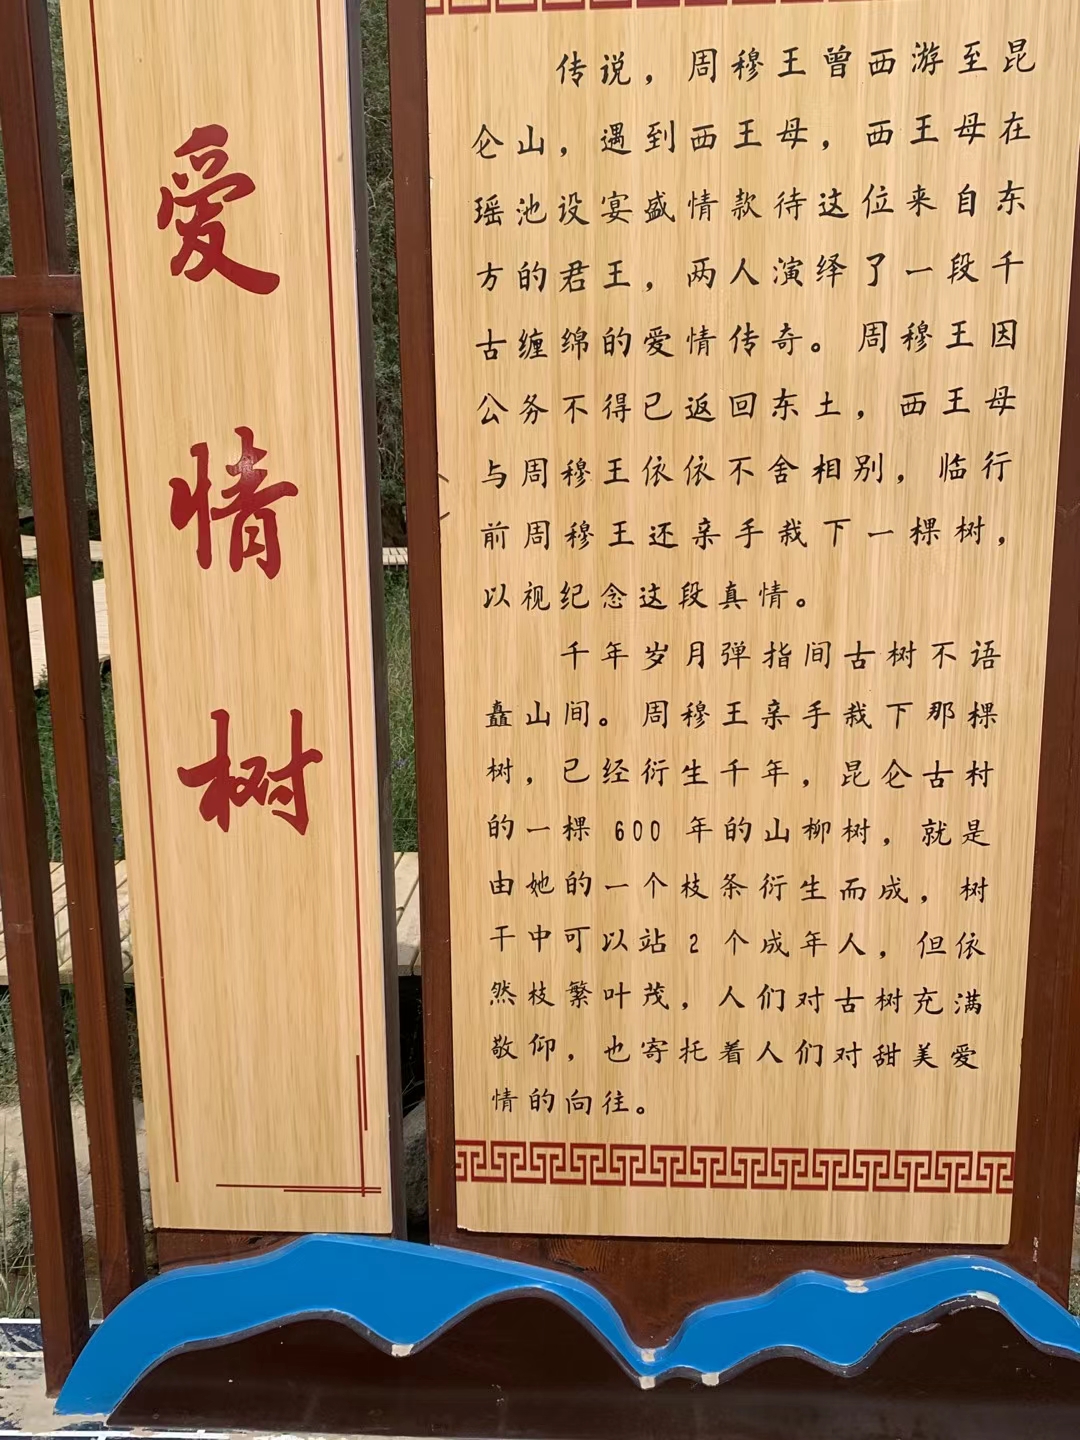 爱情树
传说，周穆王曾西游至昆
仑山，遇到西王母，西王母在
瑶池设宴盛情款待这位来自东
方的君王，两人演绎了一段千
古缠绵的爱情传奇。周穆王因
公务不得已返回东土，西王母
与周穆王依依不舍相别，临行
前周穆王还亲手栽下一棵树，
以视纪念这段真情。
千年岁月弹指间古树不语
矗山间。周穆王亲手栽下那棵
树，已经衍生千年，昆仑古村
的一棵 600 年的山柳树，就是
由她的一个枝条衍生而成，树
干中可以站 2 个成年人，但依
然枝繁叶茂，人们对古树充满
敬仰，也寄托着人们对甜美爱
情的向往。